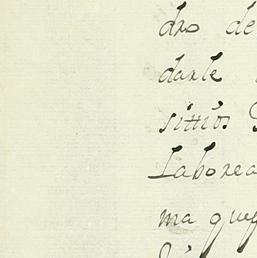 dro de
darle
sittios
Laborea
ma que